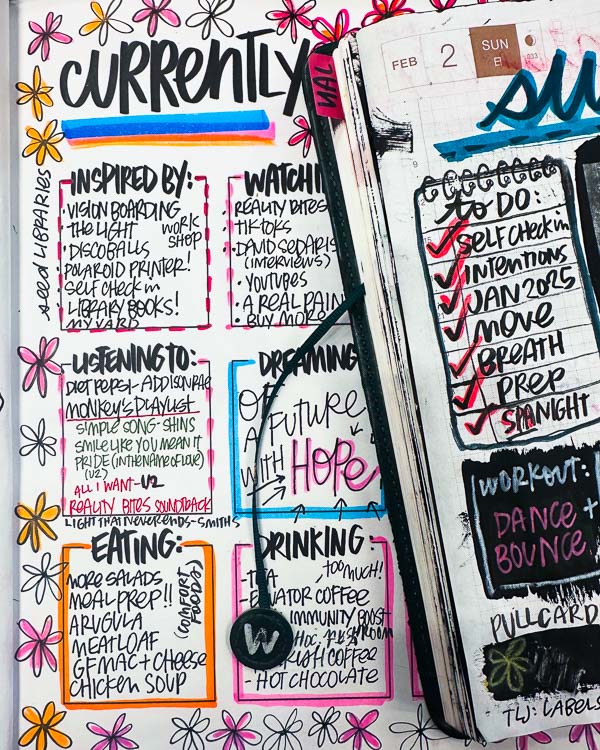 CURRENTLY
seed LIBRARIES
INSPIRED BY:
• VISION BOARDING
• THE LIGHT WORK SHOP
• DISCO BALLS
• POLAROID PRINTER!
• SELF CHECK in
LIBRARY BOOKS!
MY YARD
WATCHI
• REALITY BITES
• TIKTOKS
• DAVID SEDARIS
(INTERVIEWS)
• YOUTUBES
• A REAL PAIN
• BUY MORE
LISTENING TO:
DIET PEPSI - ADDISON RAE
MONKEY'S PLAYLIST
SIMPLE SONG - SHINS
SMILE LIKE YOU MEAN IT
PRIDE (IN THE NAME OF LOVE)
(U2)
ALL I WANT - U2
REALITY BITES SOUNDTRACK
LIGHT THAT NEVER ENDS - SMITHS
DREAMING
OF
A FUTURE
WITH HOPE
EATING:
MORE SALADS
MEAL PREP!!
ARUGULA
MEATLOAF
GF MAC + CHEESE
CHICKEN SOUP
DRINKING:
- TEA TOO MUCH!
COFFEE
IMMUNITY BOOST
COFFEE
- HOT CHOCOLATE
W
JAN
FEB 2 SUN
033
9
SU
to DO:
SELF CHECK in
INTENTIONS
JAN 2025
MOVE
BREATH
PREP
SPA NIGHT
WORKOUT:
DANCE +
BOUNCE
PULL CARD
TLJ: LABELS